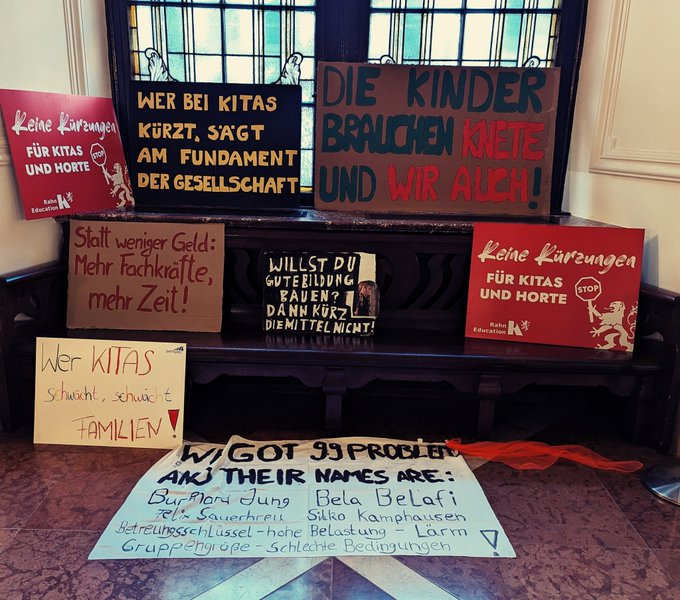 Keine Kürzungen
FÜR KITAS
UND HORTE
STOP
Rahn
Education
WER BEI KITAS
KÜRZT, SÄGT
AM FUNDAMENT
DER GESELLSCHAFT
DIE KINDER
BRAUCHEN KNETE
UND WIR AUCH!
Statt weniger Geld:
Mehr Fachkräfte,
mehr Zeit!
WILLST DU
GUTE BILDUNG
BAUEN?
DANN KÜRZ
DIE MITTEL NICHT!
Keine Kürzungen
FÜR KITAS
UND HORTE
STOP
Rahn
Education
Wer KITAS
schwächt, schwächt
FAMILIEN!
WI GOT 99 PROBLEM
AND THEIR NAMES ARE:
Burkhard Jung Bela Belafi
Felix Sauerhreu Silko Kamphausen
Betreuungsschlüssel - hohe Belastung - Lärm
Gruppengröße - Schlechte Bedingungen !